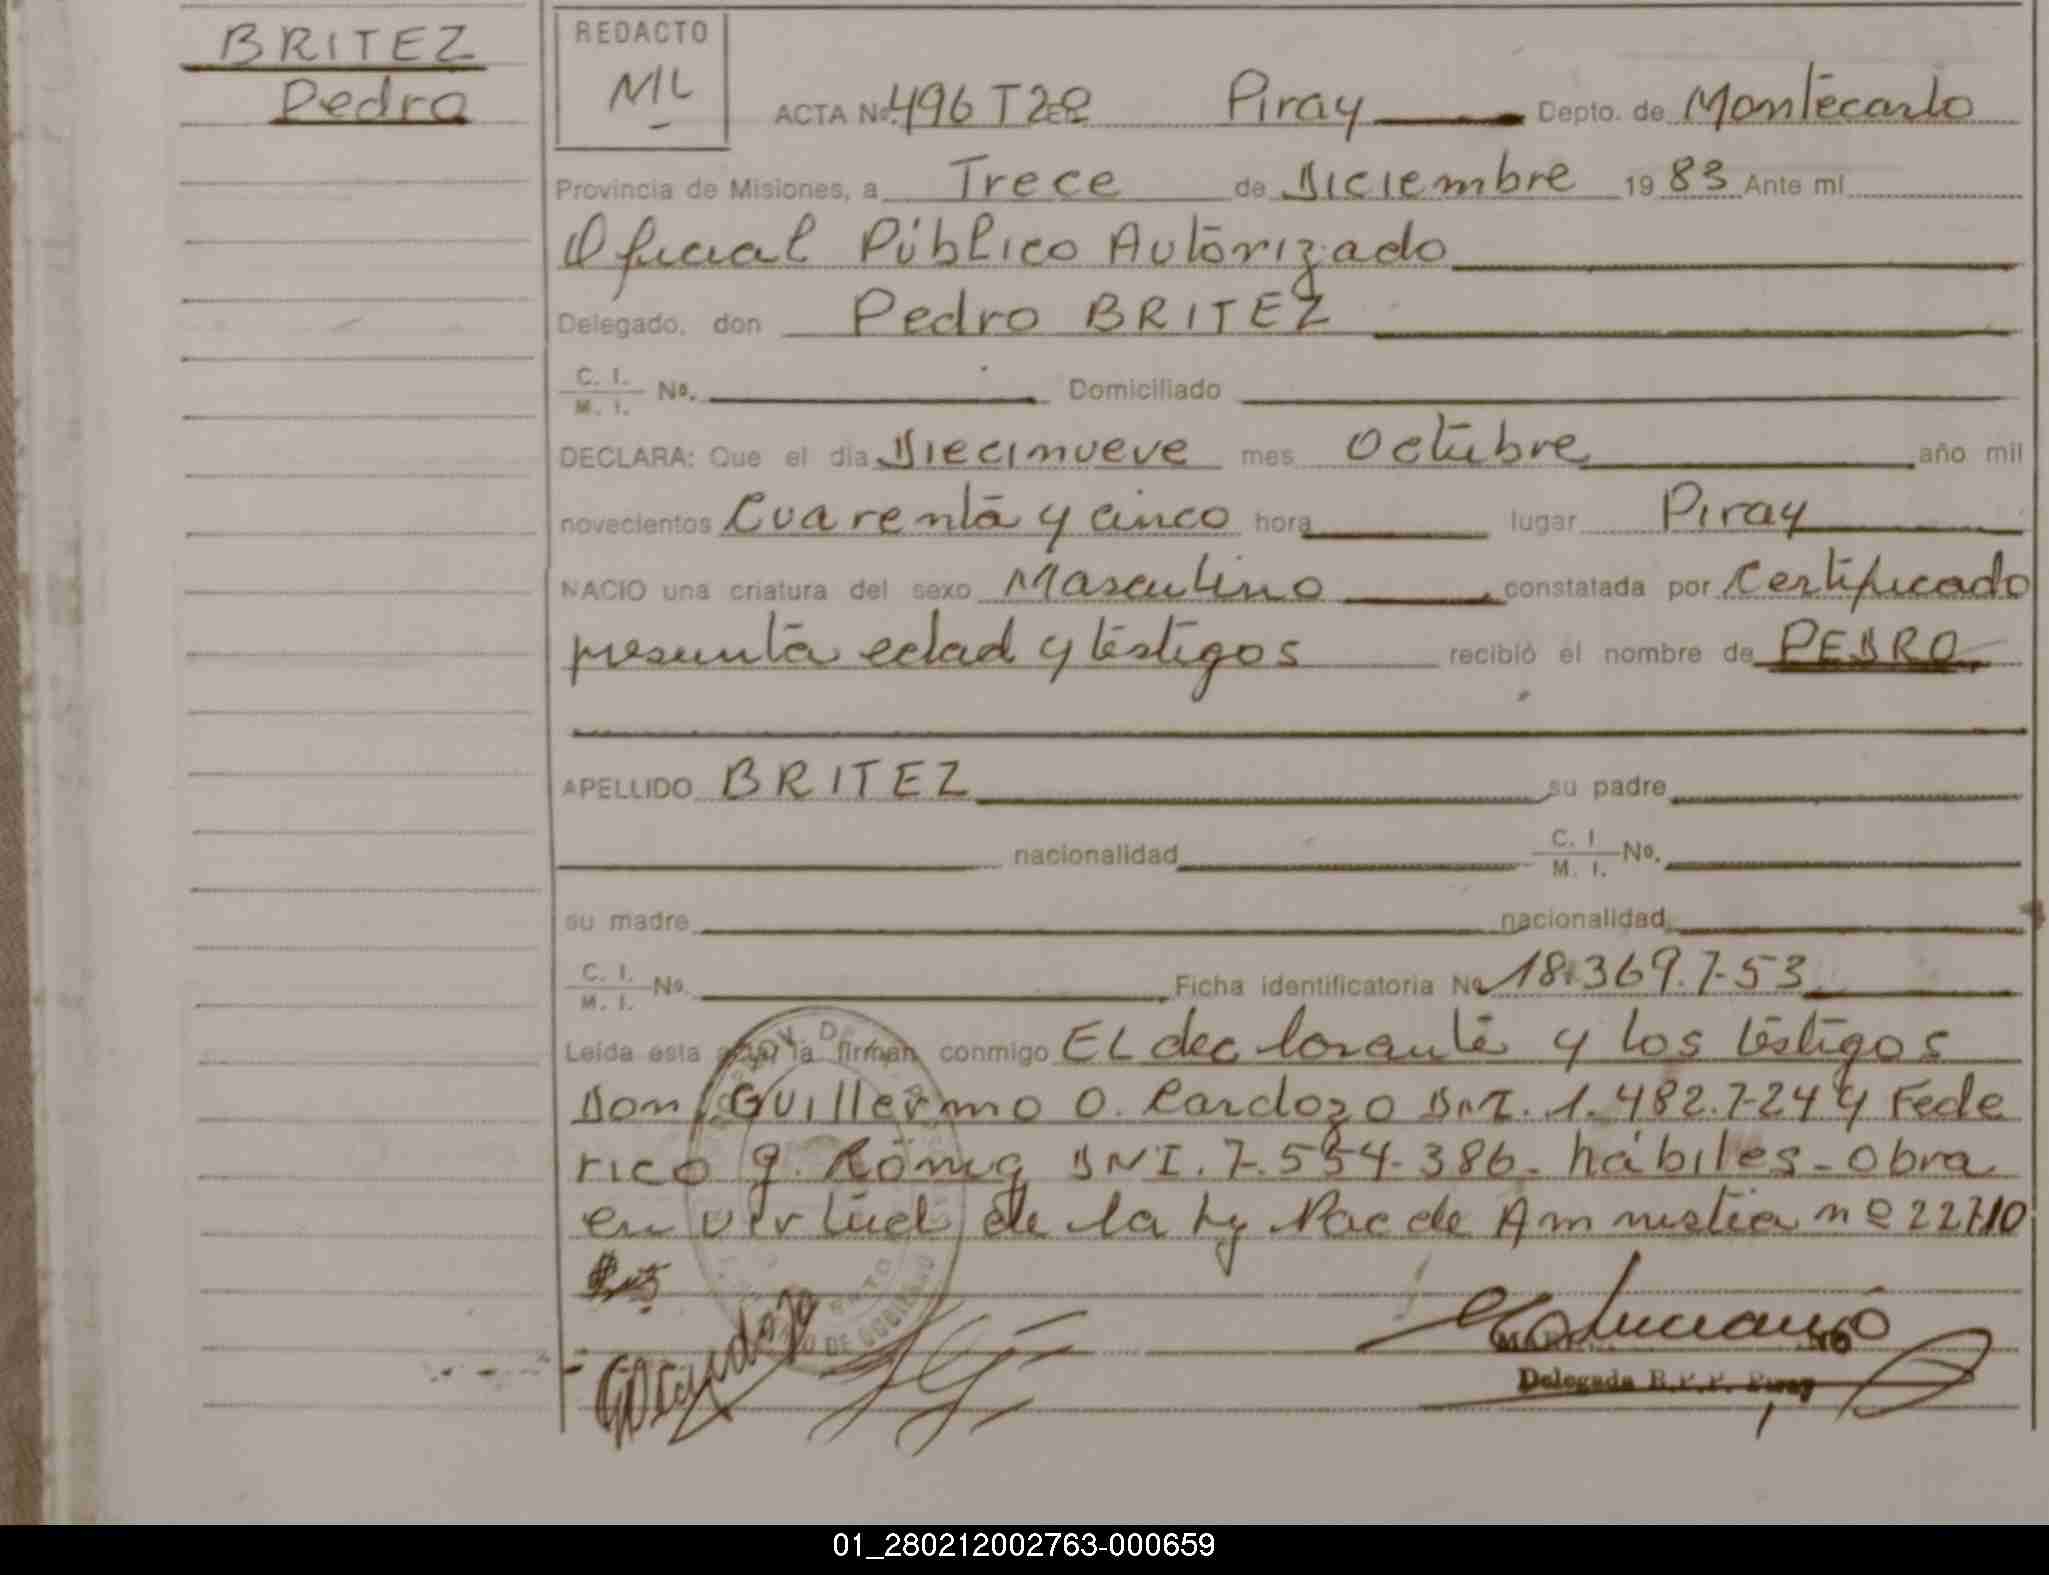 BRITEZ
Pedro
REDACTO
ML
ACTA No. 496 T2º Piray Depto. de Montecarlo
Provincia de Misiones, a Trece de Diciembre 1983 Ante mí
Oficial Público Autorizado
Delegado, don Pedro BRITEZ
C. I. M. I. No. Domiciliado
DECLARA: Que el día Diecinueve mes Octubre año mil
novecientos Cuarenta y cinco hora lugar Piray
NACIO una criatura del sexo Masculino constatada por Certificado
presunta edad y testigos recibió el nombre de PEDRO
APELLIDO BRITEZ su padre
nacionalidad C. I. M. I. No.
su madre nacionalidad
C. I. M. I. No. Ficha identificatoria No 18.369.753
Leída esta acta, la firman conmigo El declarante y los testigos
Don Guillermo O. Cardozo DNI. 1.482.724 y Fede
rico g. König DNI. 7.554.386. hábiles - Obra
en virtud de la Ley Nac de Amnistia nº 22710
Delegada R.P.P. Piray
01_280212002763-000659